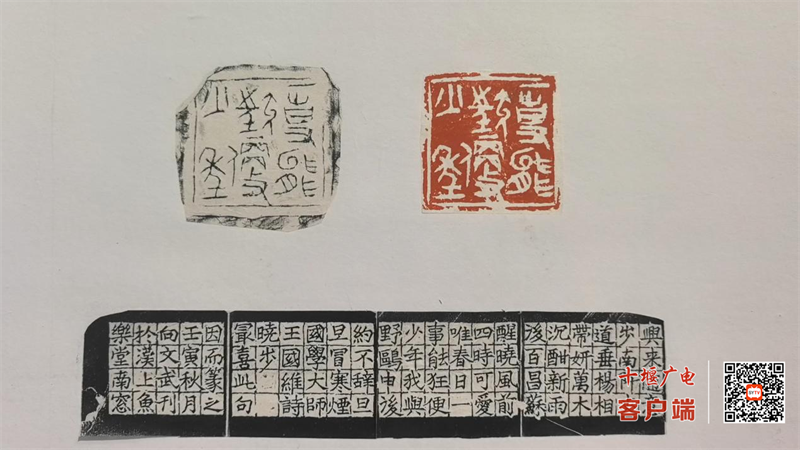 一事能
狂便
少年
興來
步南
道垂楊相
帶妍萬木
沉酣新雨
後百昌蘇
醒曉風前
四時可愛
唯春日一
事能狂便
少年我與
野鷗申後
約不辭旦
旦冒寒煙
國學大師
王國維詩
曉步
冣喜此句
因而篆之
壬寅秋月
向文武刊
扵漢上魚
樂堂南窓
十堰广电
客户端